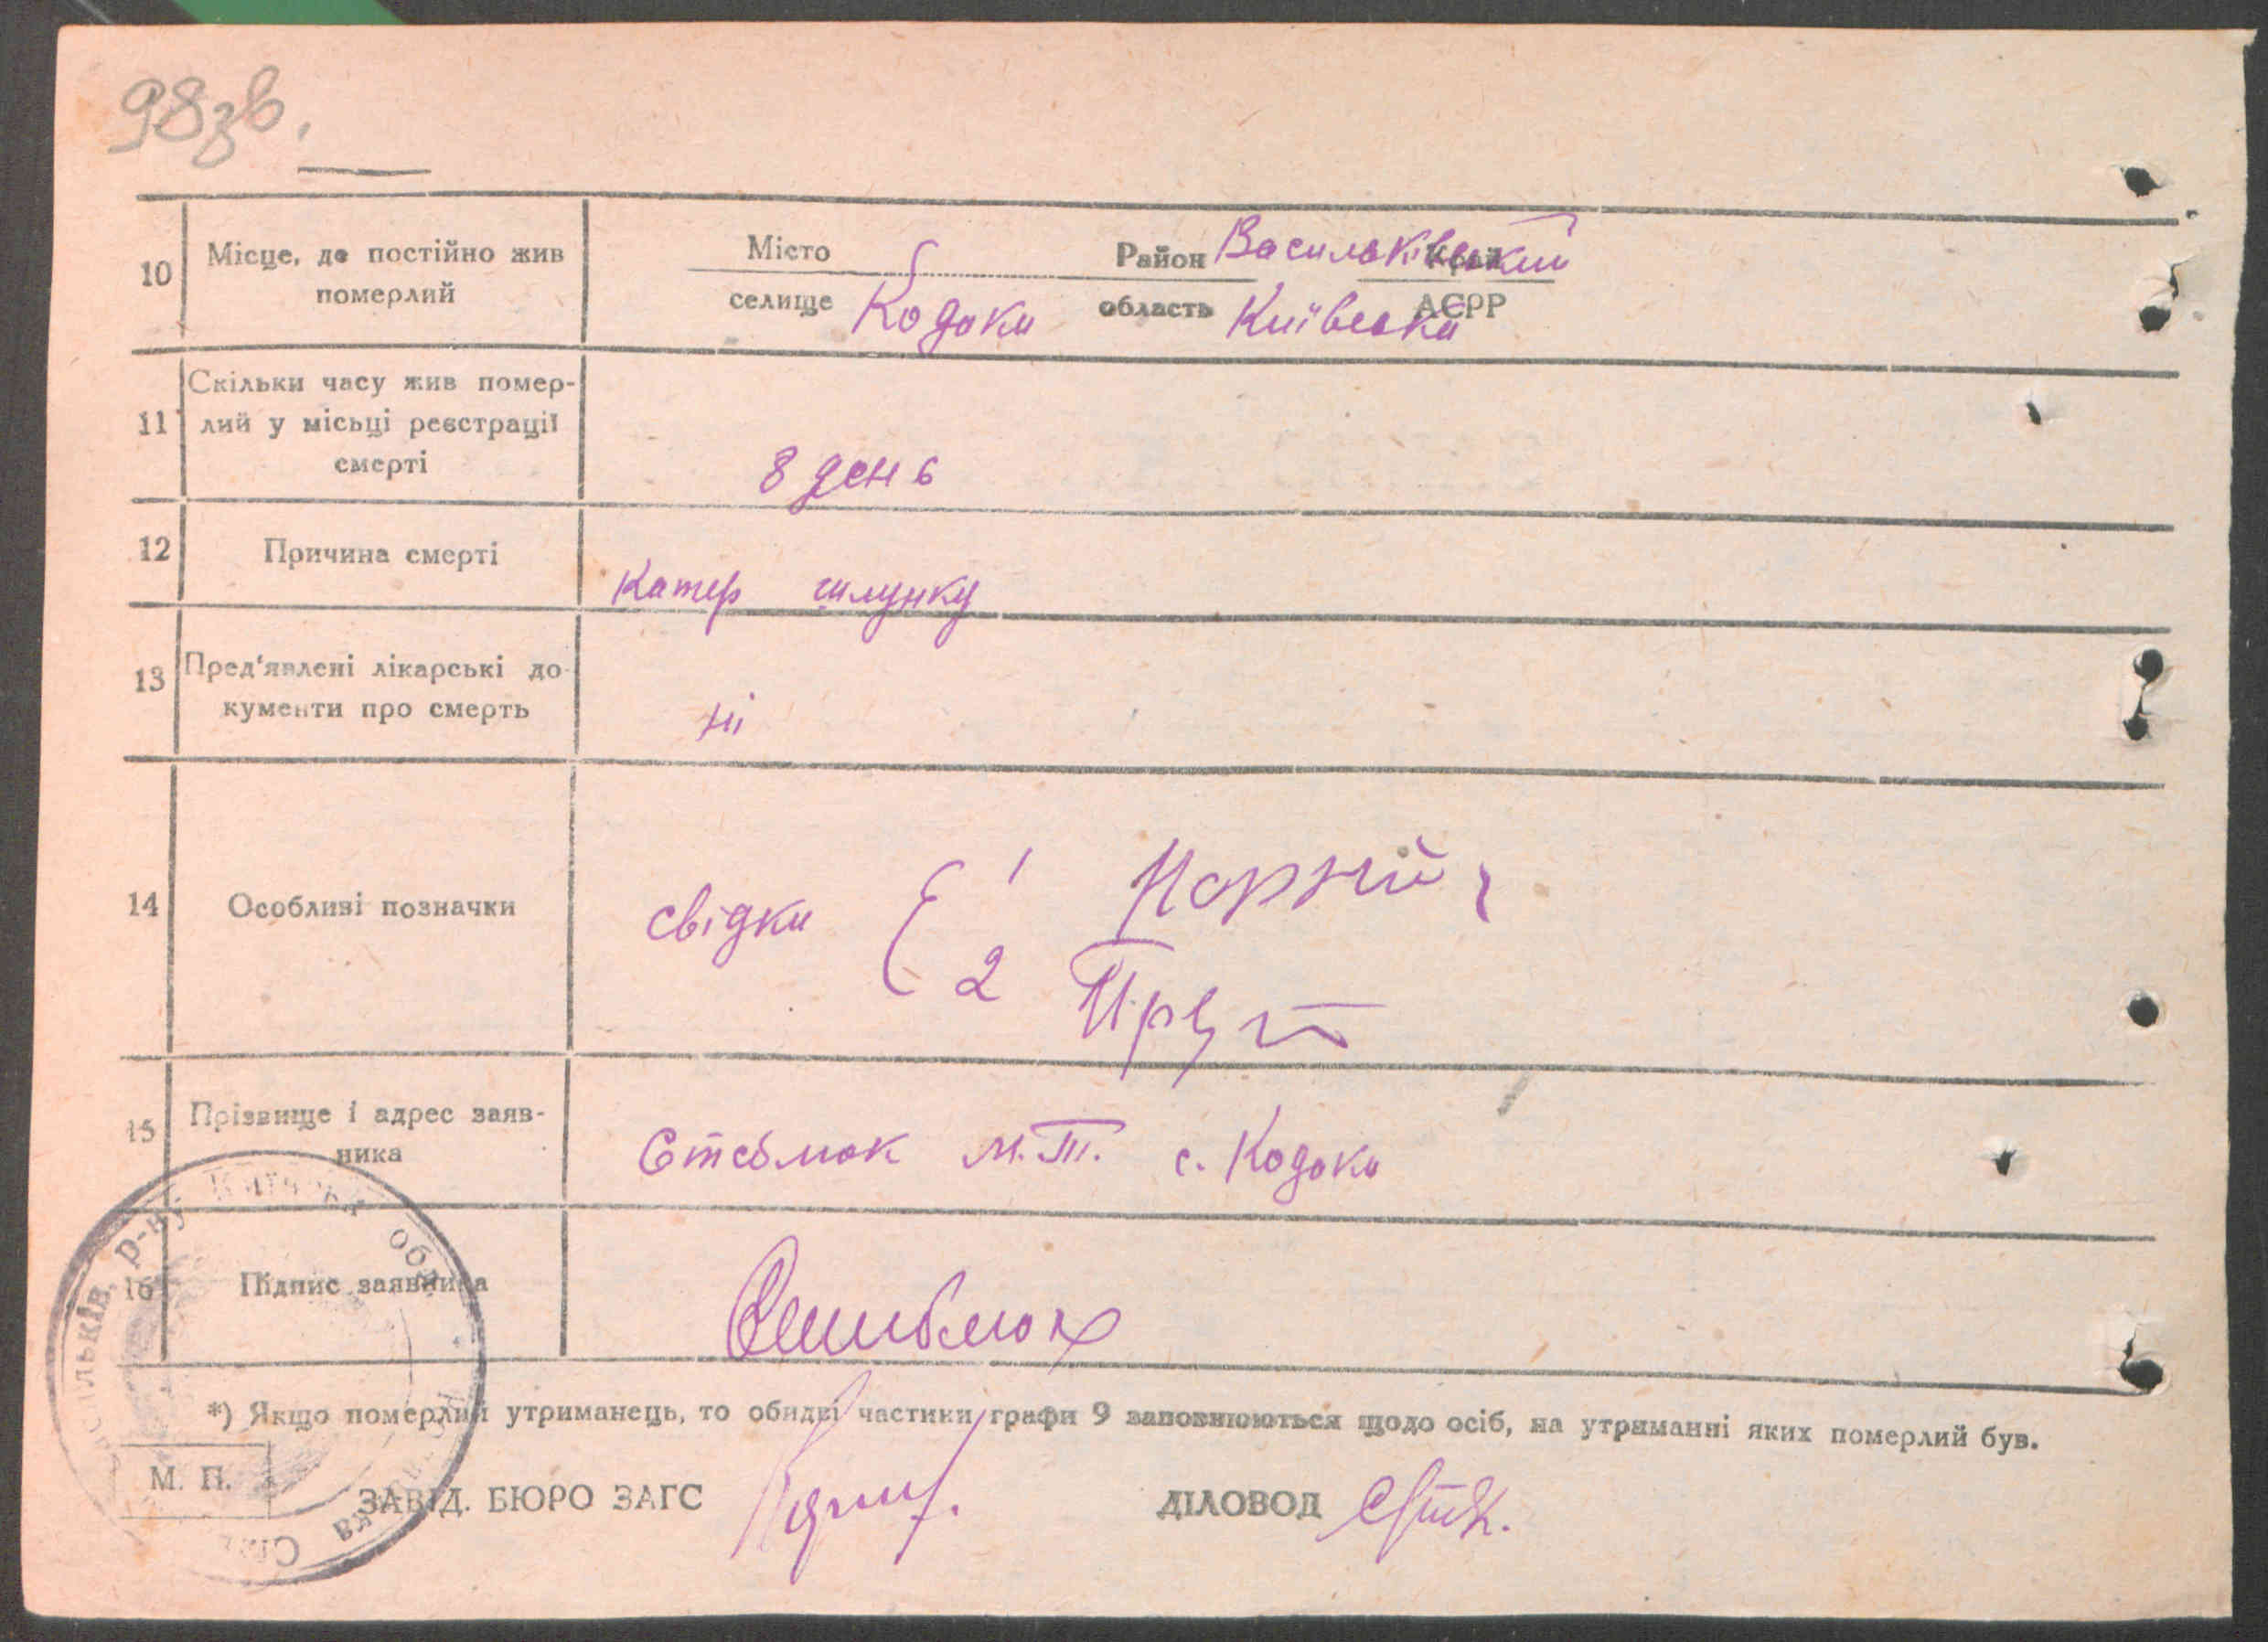 98зв.
10 Місце, де постійно жив померлий
Місто Район Васильківський Край
селище Кодаки область Київська АСРР
11 Скільки часу жив помер-
лий у місьці реєстрації
смерті
8 день
12 Причина смерті
Катер шлунку
13 Пред'явлені лікарські до-
кументи про смерть
ні
14 Особливі позначки
свідки 1
2
15 Прізвище і адрес заяв-
ника
Стеблюк М.Т. с. Кодаки
16 Підпис заявника
Стеблюк
*) Якщо померлий утриманець, то обидві частини графи 9 заповнюються щодо осіб, на утриманні яких померлий був.
М. П.
ЗАВІД. БЮРО ЗАГС
ДІЛОВОД
р-ну Київськ обл.